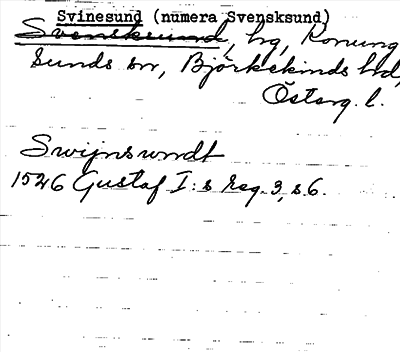 Svinesund (numera Svensksund)
Svensksund, hg, Konung
sunds sn, Björkekinds hd,
Österg. l.
Swijnsundt
1526 Gustaf I:s reg. 3, s. 6.